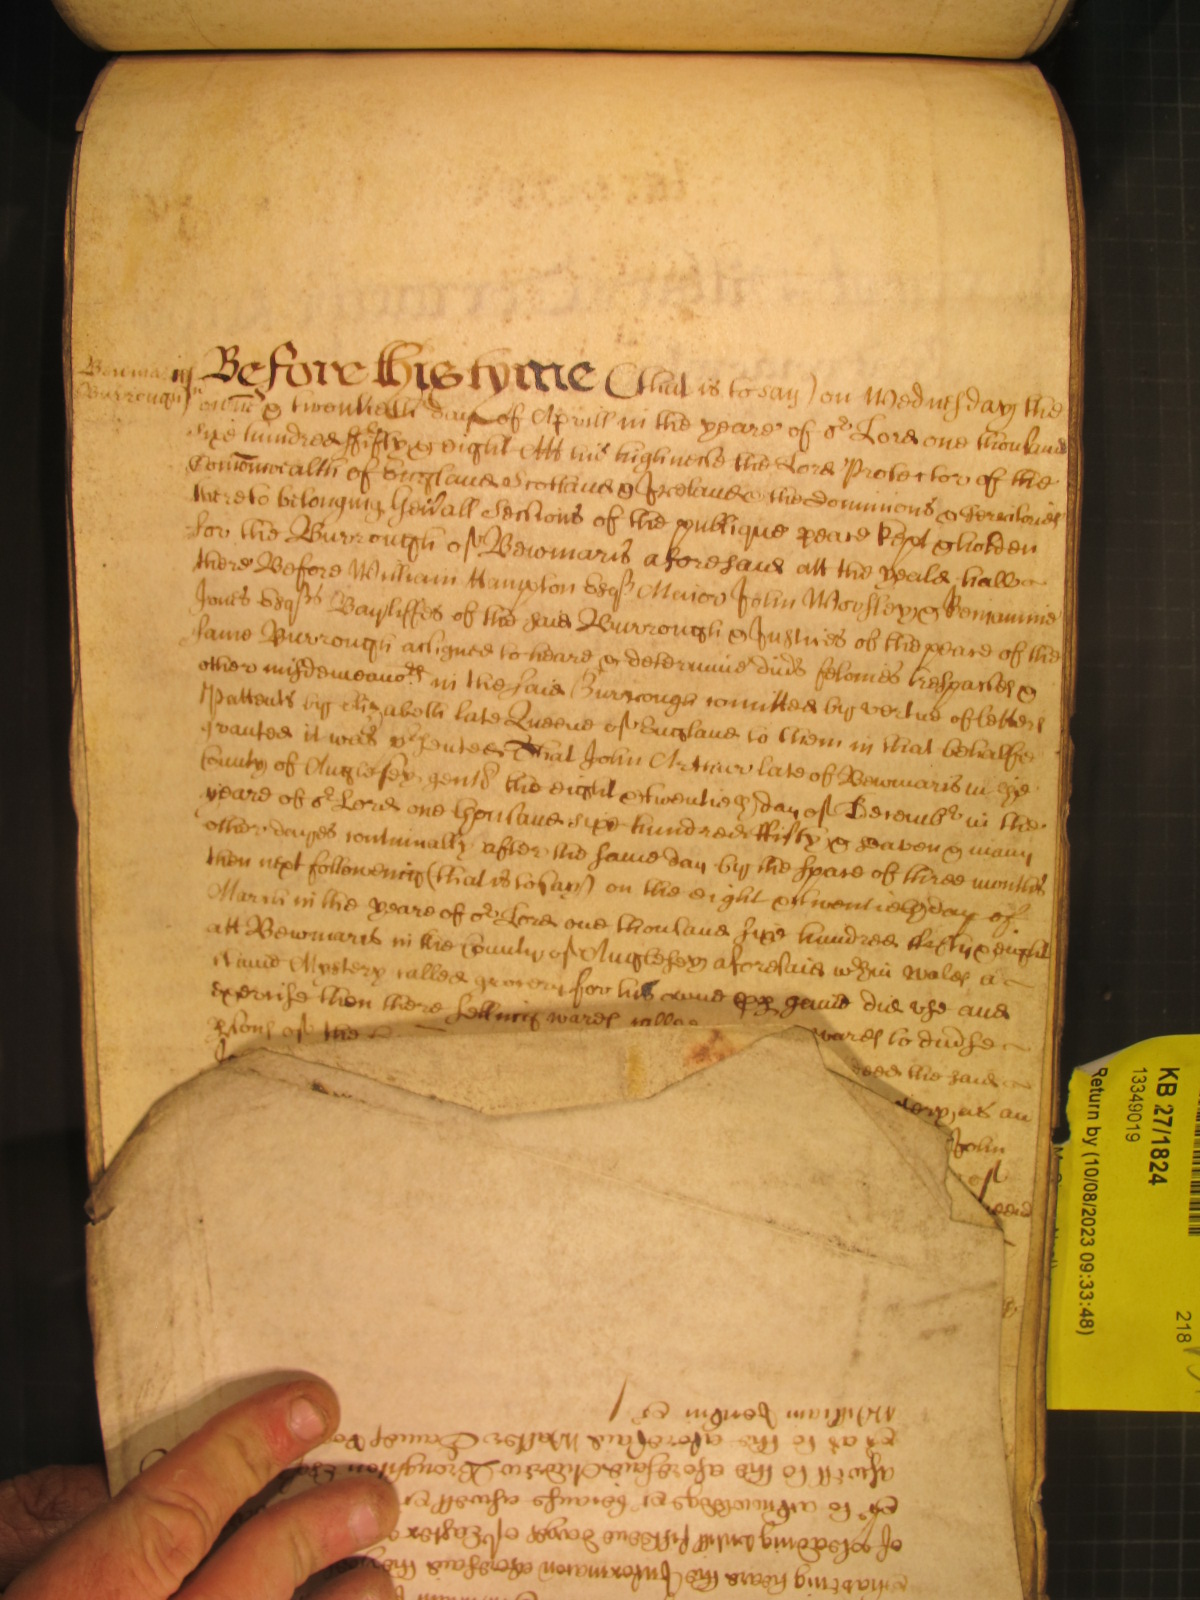 Bewmaris
Burrough
Before this tyme (that is to say) on Wednesday the
one & twentieth day of Aprill in the yeare of or Lord one thousand
sixe hundred ffifty & eight Att his highnesse the Lord Protector of the
Comonwealth of England Scotland & Ireland & the dominions & territories
thereto belonging gen'all Sessions of the publique peace kept & holden
for the Burrough of Bewmaris aforesaid att the yeald hall
there Before William Hampton Esqr Maior John Worsley & Benjamine
Jones Esqrs Bayliffes of the said Burrough & Justices of the peace of the
same Burrough assigned to heare & determine divs felonies trespasses &
other misdemeanors in the said Burrough comitted by vertue of letters
Pattents by Elizabeth late Queene of England to them in that behalfe
granted it was p'sented That John Arthur late of Bewmaris in the
County of Anglesey gent the eight & twentieth day of Decembr in the
yeare of or Lord one thousand sixe hundred ffifty & seaven & many
other dayes continually after the same day by the space of three months
then next following (that is to say) on the eight & twentieth day of
March in the yeare of or Lord one thousand sixe hundred ffifty & eight
att Bewmaris in the County of Anglesey aforesaid wthin Wales a
Mystery called grocery for his owne pp gaine did use and
exercise then there selling wares
psons of the wares to divse
the said
as an
John
of
William Jenkin
as to the aforesaid Walter
aswell to the aforesaid Andrew Broughton Esq
to acknowledge because aswell
of pleading untill fifteene dayes of Easter
haveing heard the Informacon aforesaid
KB 27/1824
13349019
Return by (10/08/2023 09:33:48)
218